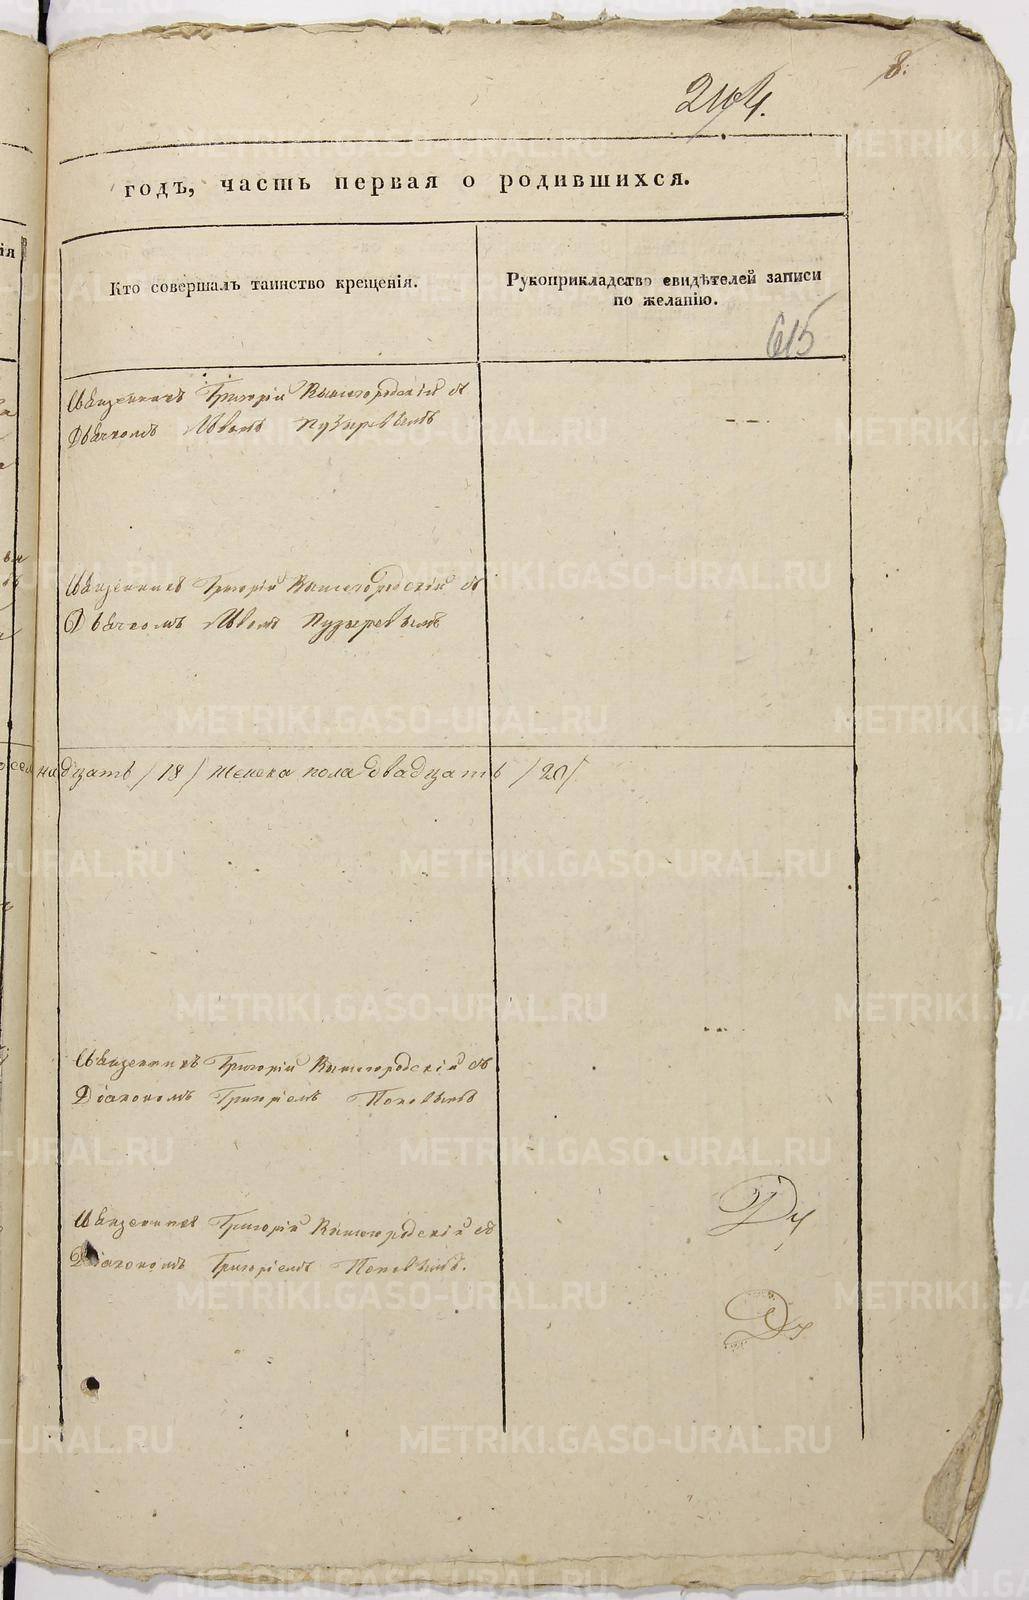 8.
годъ, часть первая о родившихся.
Кто совершалъ таинство крещенія.
Рукоприкладство свидѣтелей записи
по желанію.
615
Священникъ Григорій Вышегородскій съ
Дьячкомъ Львомъ Пузыревымъ
Священникъ Григорій Вышегородскій съ
Дьячкомъ Львомъ Пузыревымъ
надцать /18/ женска пола двадцать /20/
Священникъ Григорій Вышегородскій съ
Діакономъ Григоріемъ Поповымъ
Священникъ Григорій Вышегородскій съ
Діакономъ Григоріемъ Поповымъ.
METRIKI.GASO-URAL.RU